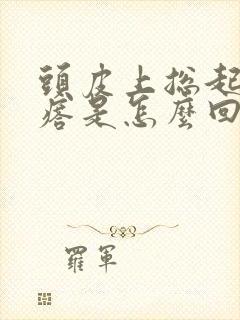 頭皮上總起
痞是怎麼回
羅軍